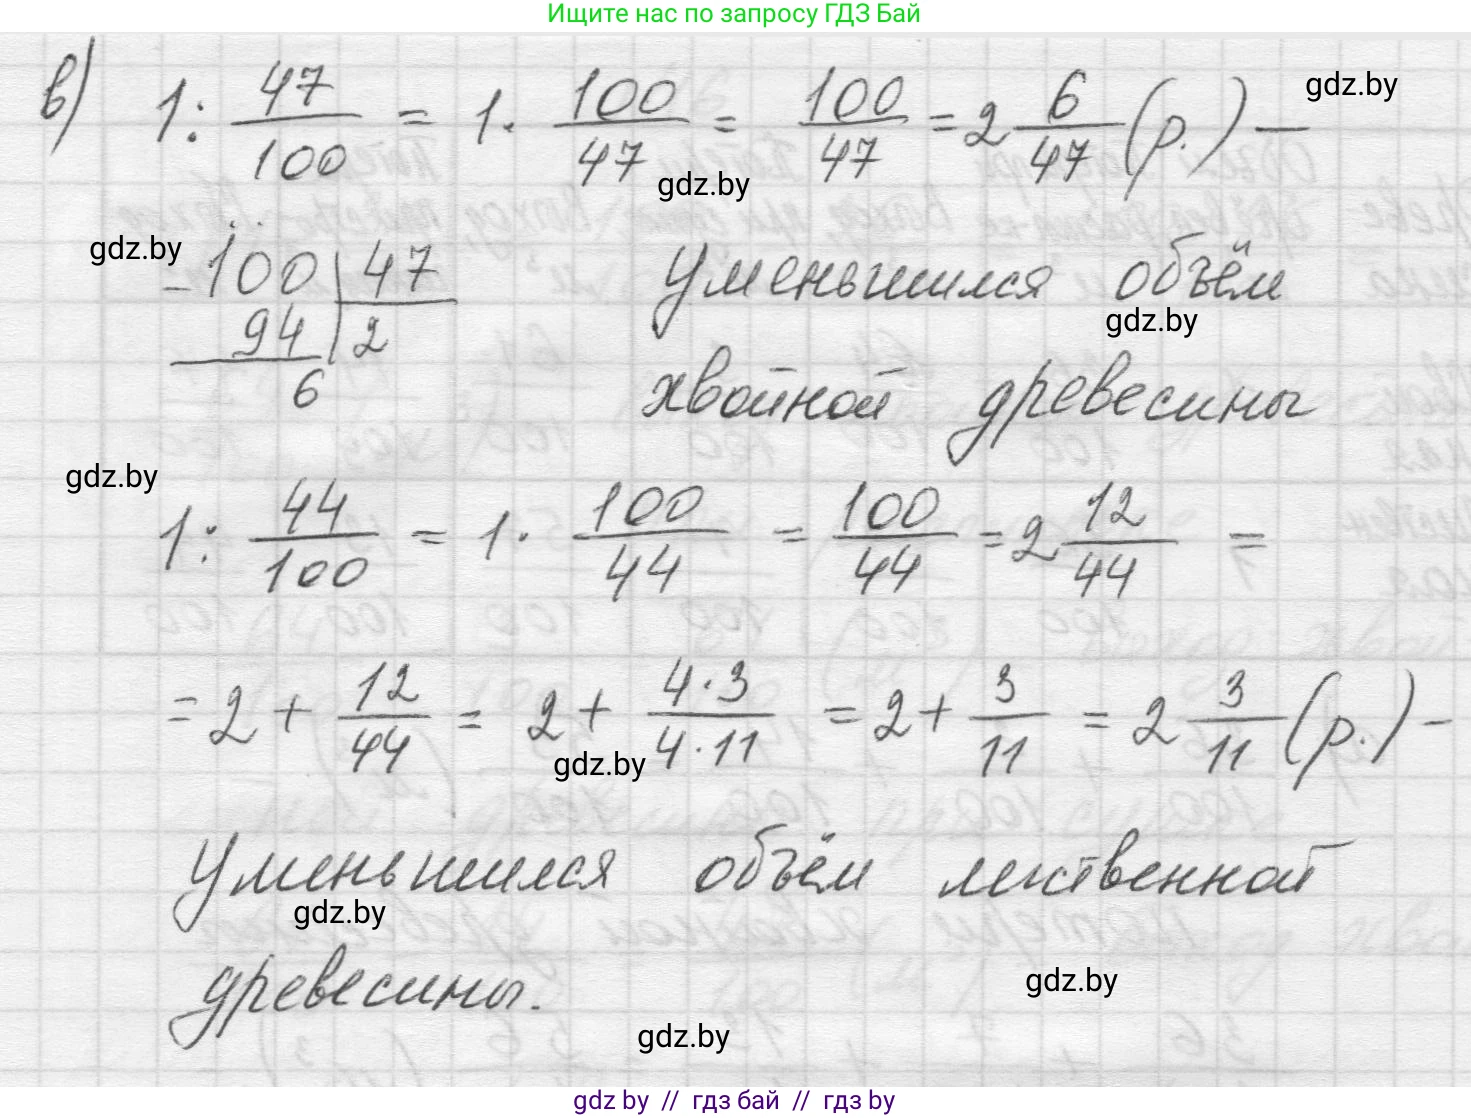 Ищите нас по запросу ГДЗ Бай
в) 1 : 47/100 = 1 · 100/47 = 100/47 = 2 6/47 (р.) —
gdz.by
gdz.by
gdz.by
- 100 | 47
94 | 2
6
уменьшился объём
gdz.by
хвойной древесины
gdz.by
1 : 44/100 = 1 · 100/44 = 100/44 = 2 12/44 =
= 2 + 12/44 = 2 + 4·3/4·11 = 2 + 3/11 = 2 3/11 (р.) -
gdz.by
уменьшился объём лиственной
gdz.by
древесины.
gdz.by
gdz.by
gdz by // гдз бай // гдз by